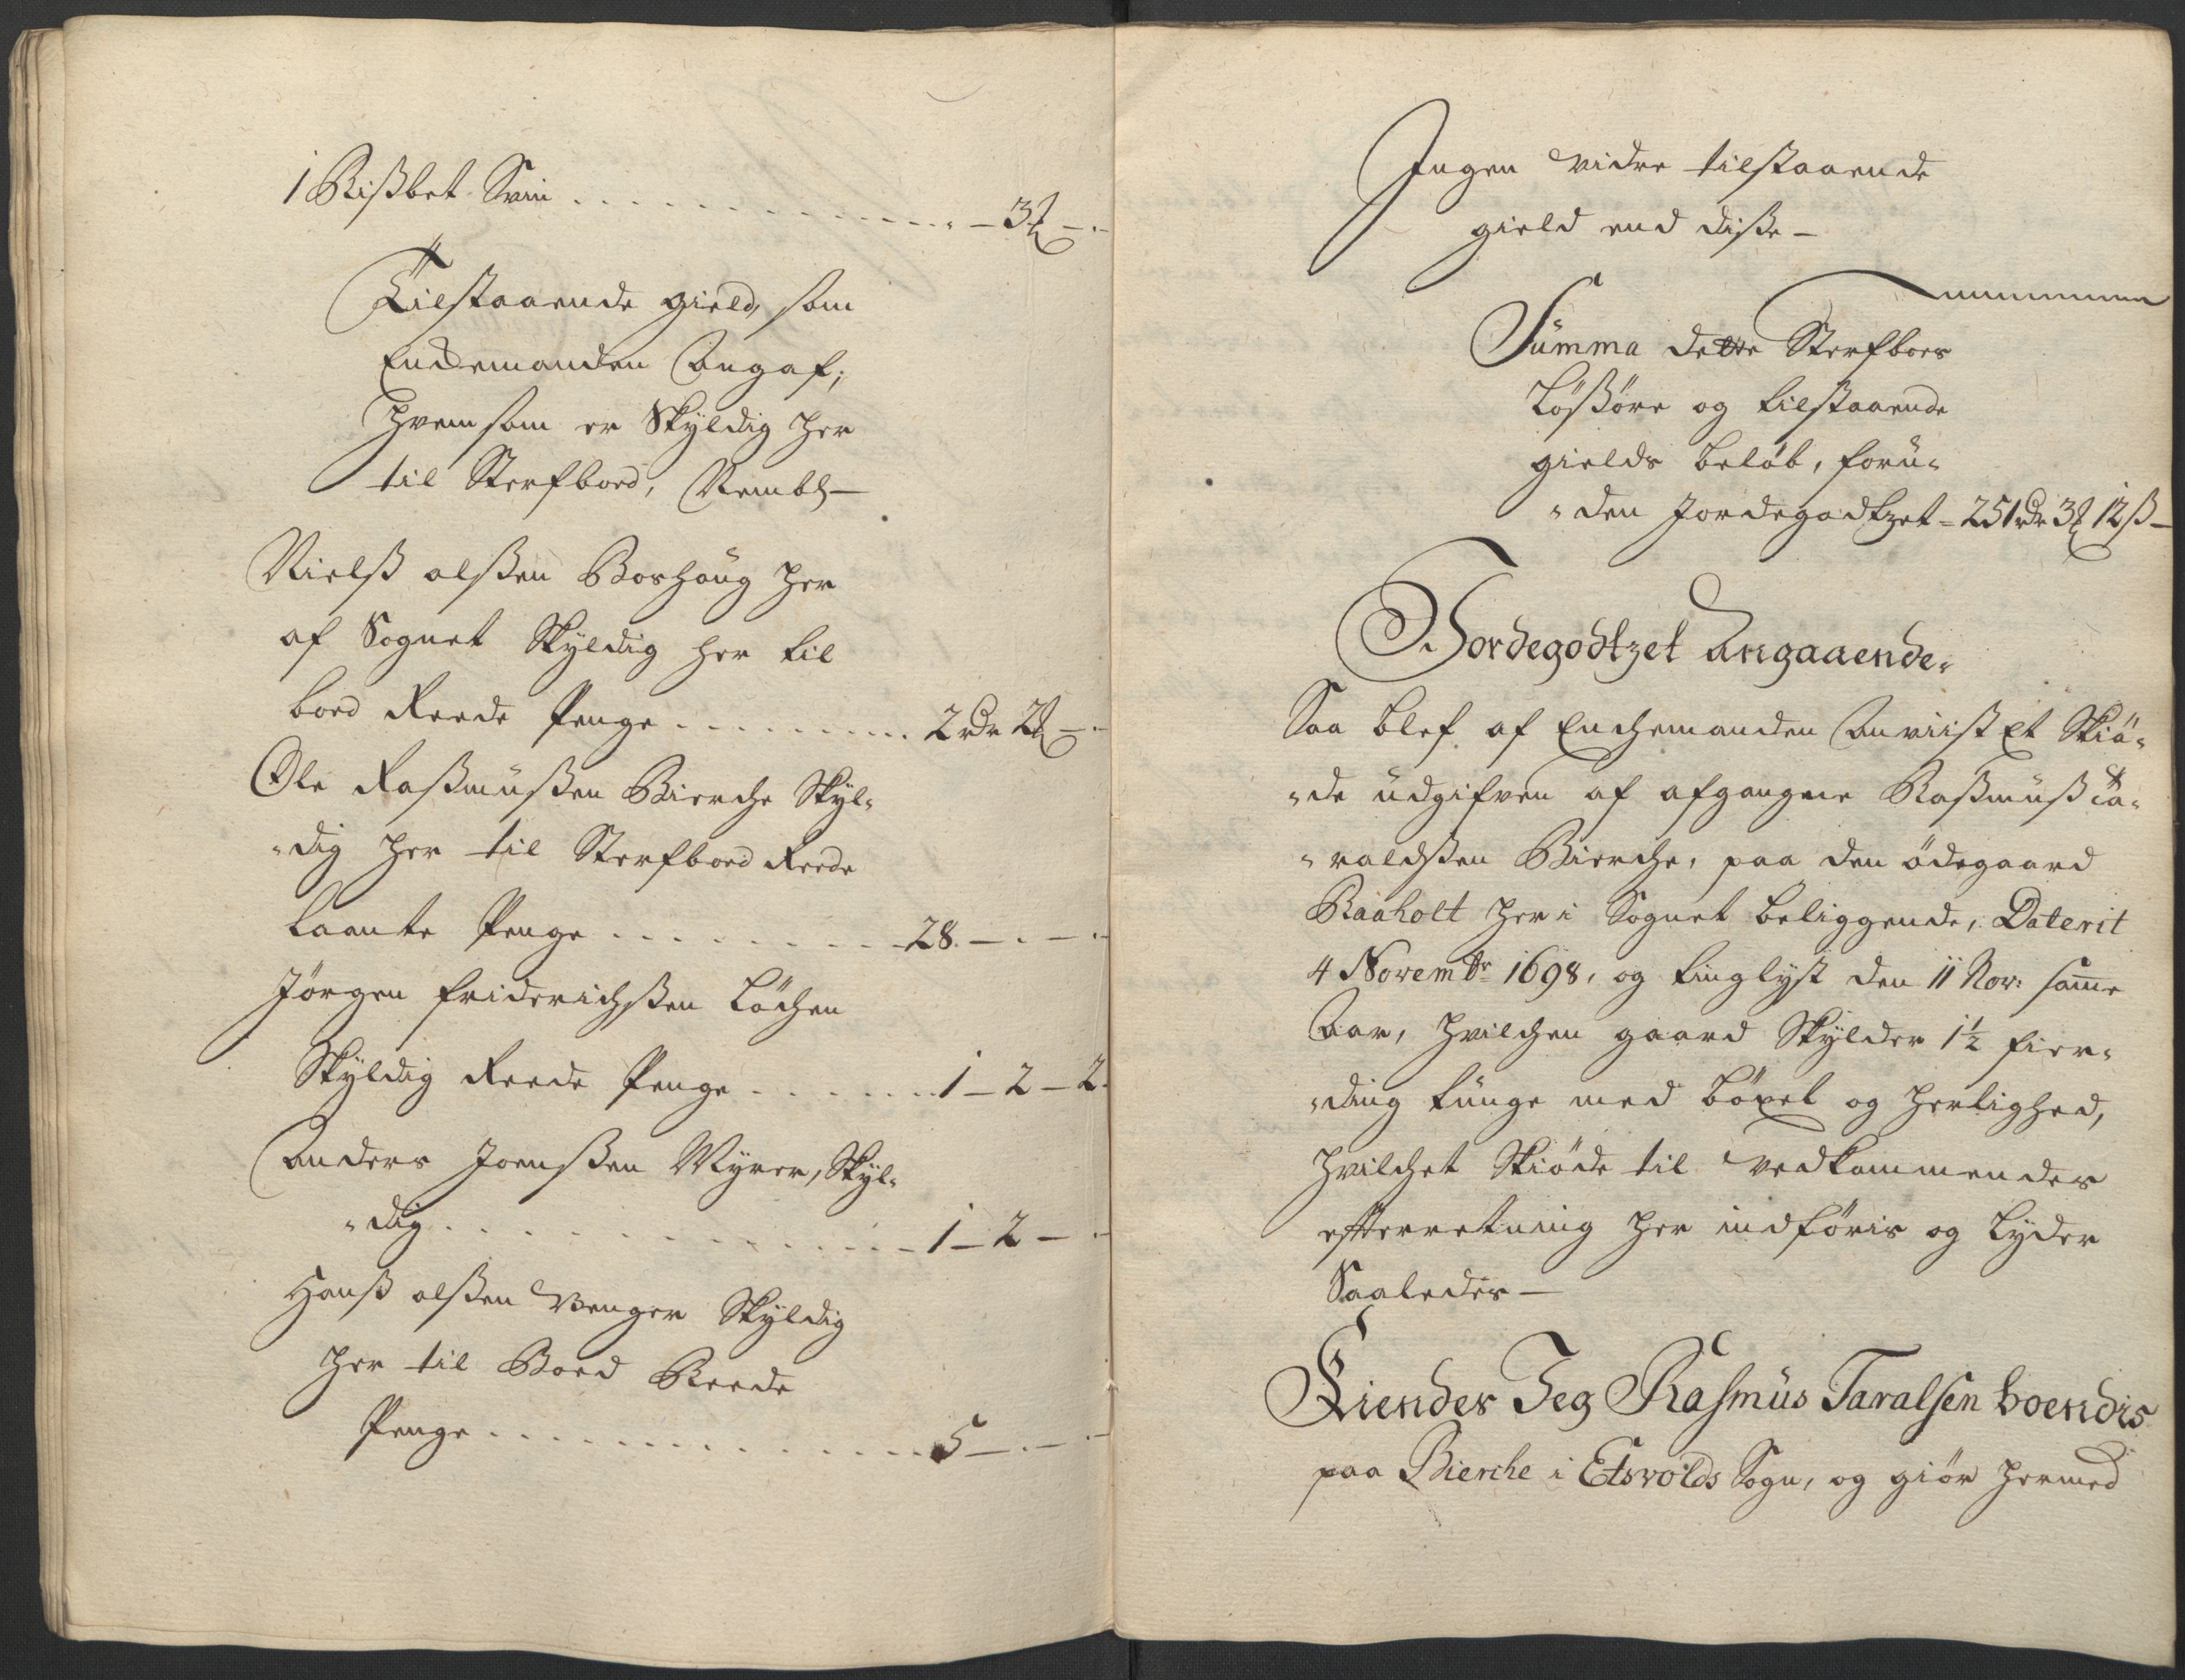 1 Rißbet Svin . . . . . . . . . . . . – 3 ℔ – . –
Tilstaaende gield, som
Enchemanden Angaf,
hvem som er Skÿldig her
til Sterfboed, Nembl –
Nielß olßen Borhaug her
af Sognet Skÿldig her til
boed Reede Penge . . . . . . . . . 2 rdr 2 ℔ – . –
Ole Raßmüßen Bierche Skÿl-
-dig her til Sterfboed Reede
laante Penge . . . . . . . . – 28 – . – . –
Jörgen friderichßen Löchen
Skÿldig Reede Penge . . . . . . . 1 – 2 – 2.
Anders Joenßen Mÿrer, Skÿl-
-dig . . . . . . . . . . . . – 1 – 2 – . –
Hanß olßen Venger Skÿldig
her til Boed Reede
Penge . . . . . . . . . . . . . 5 – . – . –
Ingen vidre tilstaaende
gield end diße –
Summa dette Sterfboes
Lößöre og tilstaaende
gields beløb, foru-
-den Jordegodtzet – 251 rdr 3 ℔ 12 ß –
Jordegodtzet Angaaende.
Saa blef af Enchemanden Anviist Et Skiö-
-de udgifven af afgangne Raßmüß Ta-
-raldßen Bierche, paa den ödegaard
Raaholt her i Sognet beliggende, Daterit
4 Novembr 1698, og tinglÿst den 11 Nov: samme
Aar, hvilchen gaard Skÿlder 1½ fier-
-ding tünge med böxel og herlighed,
hvilchet Skiöde til vedkommendes
efterretning her indföris og Lÿder
Saaledes –
Kiendes Jeg Rasmus Taralsen boendis
paa Bierche i Etsvolds Sogn, og giör hermed